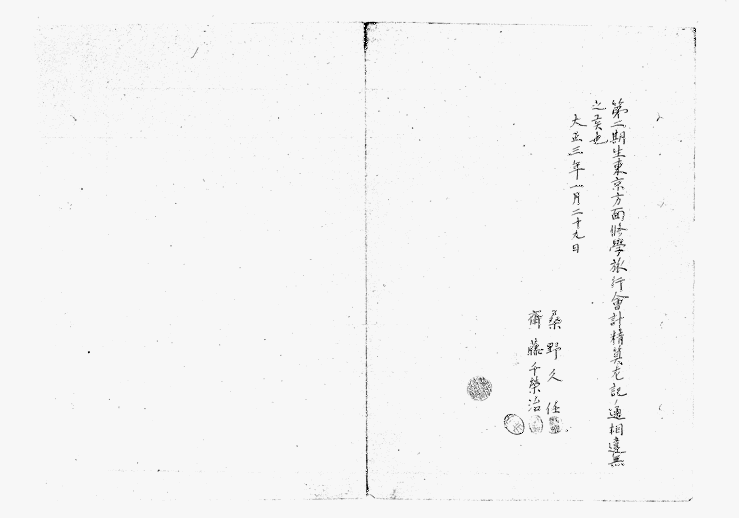 第二期生東京方面修學旅行會計精算左記ノ通相違無
之
大正三年 月二十九日
桑野久任
齊藤千榮治